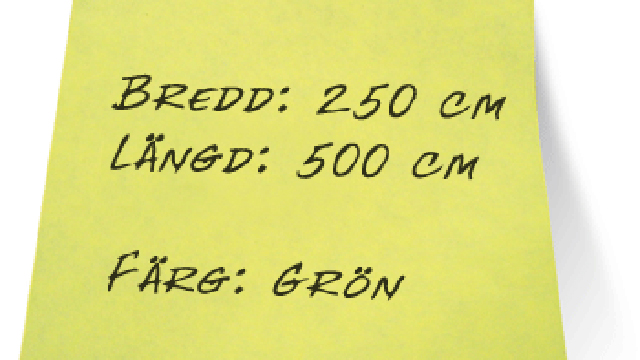 Bredd: 250 cm
Längd: 500 cm
Färg: Grön